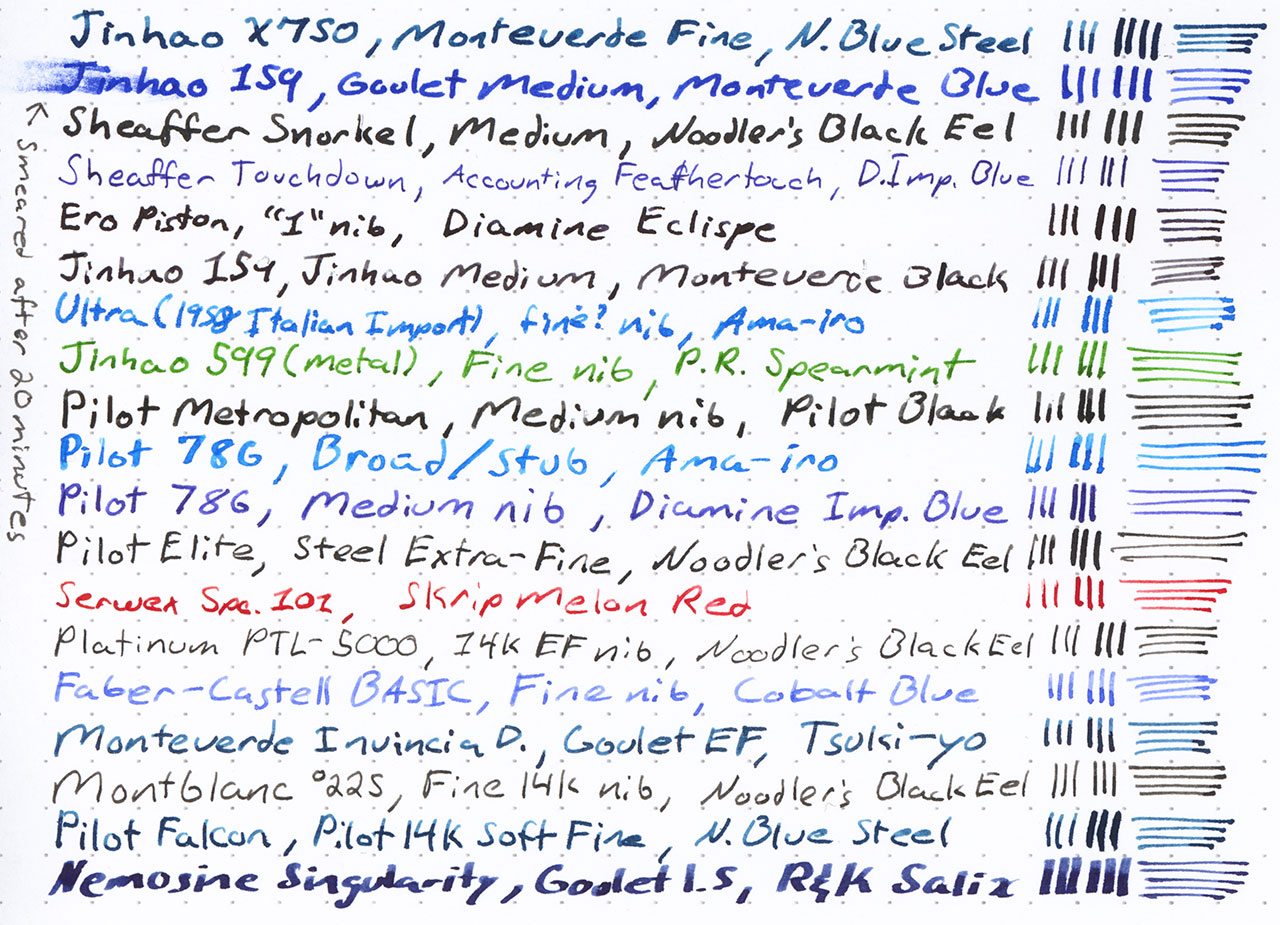 Jinhao X750, Monteverde Fine, N. Blue Steel
Jinhao 159, Goulet Medium, Monteverde Blue
Sheaffer Snorkel, Medium, Noodler's Black Eel
Sheaffer Touchdown, Accounting Feathertouch, D.Imp. Blue
Ero Piston, "1" nib, Diamine Eclispe
Jinhao 159, Jinhao Medium, Monteverde Black
Ultra (1958 Italian Import), fine? nib, Ama-iro
Jinhao 599 (metal), Fine nib, P.R. Spearmint
Pilot Metropolitan, Medium nib, Pilot Black
Pilot 78G, Broad/Stub, Ama-iro
Pilot 78G, Medium nib, Diamine Imp. Blue
Pilot Elite, Steel Extra-Fine, Noodler's Black Eel
Serwex Spc. 101, Skrip Melon Red
Platinum PTL-5000, 14K EF nib, Noodler's Black Eel
Faber-Castell BASIC, Fine nib, Cobalt Blue
Monteverde Invincia D., Goulet EF, Tsuki-yo
Montblanc °225, Fine 14k nib, Noodler's Black Eel
Pilot Falcon, Pilot 14K Soft Fine, N. Blue Steel
Nemosine Singularity, Goulet 1.5, R&K Salix
↑ Smeared after 20 minutes